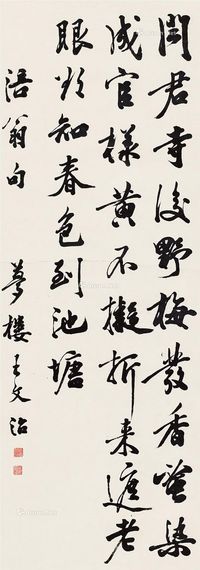 聞君寺後野梅發香蜜染
成宮樣黃不擬折來遮老
眼欲知春色到池塘
涪翁句 夢樓王文治